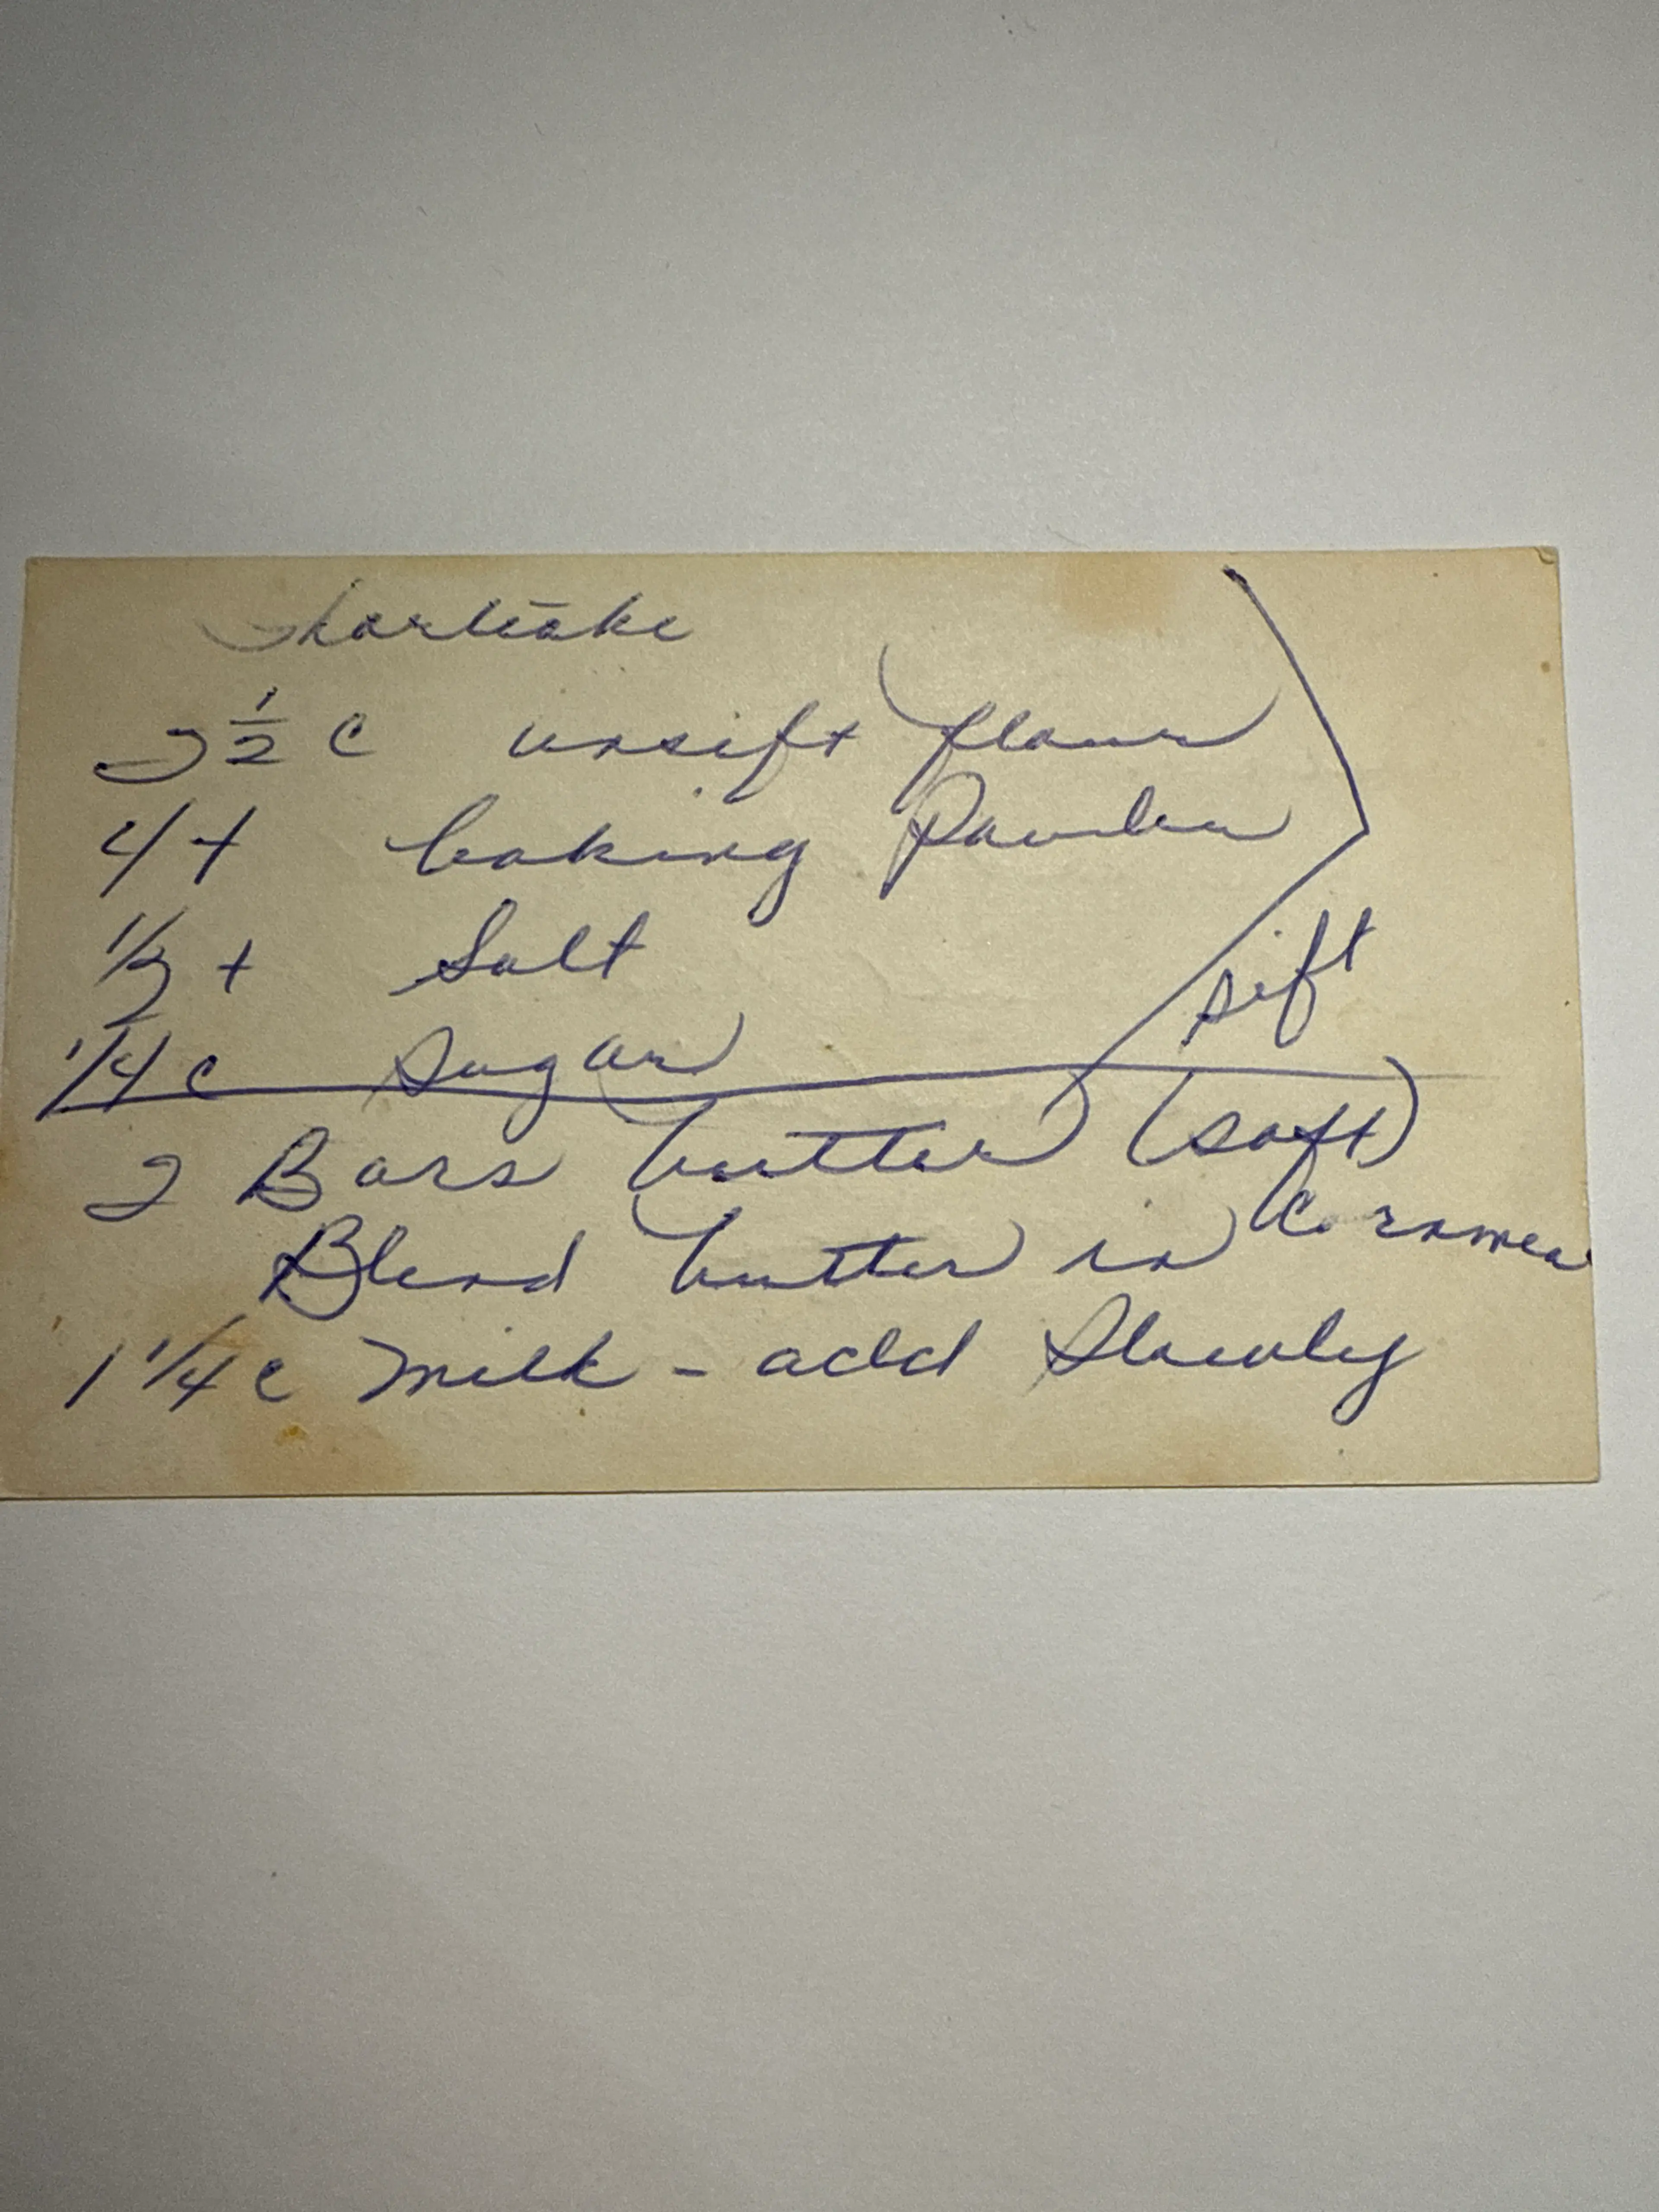 Shortcake
2 1/2 c unsift flour
4 t baking Powder
1/2 t Salt
1/4 c sugar
sift
2 Bars butter (soft)
Blend butter in Cornmea
1 1/4 c milk - add Slowly